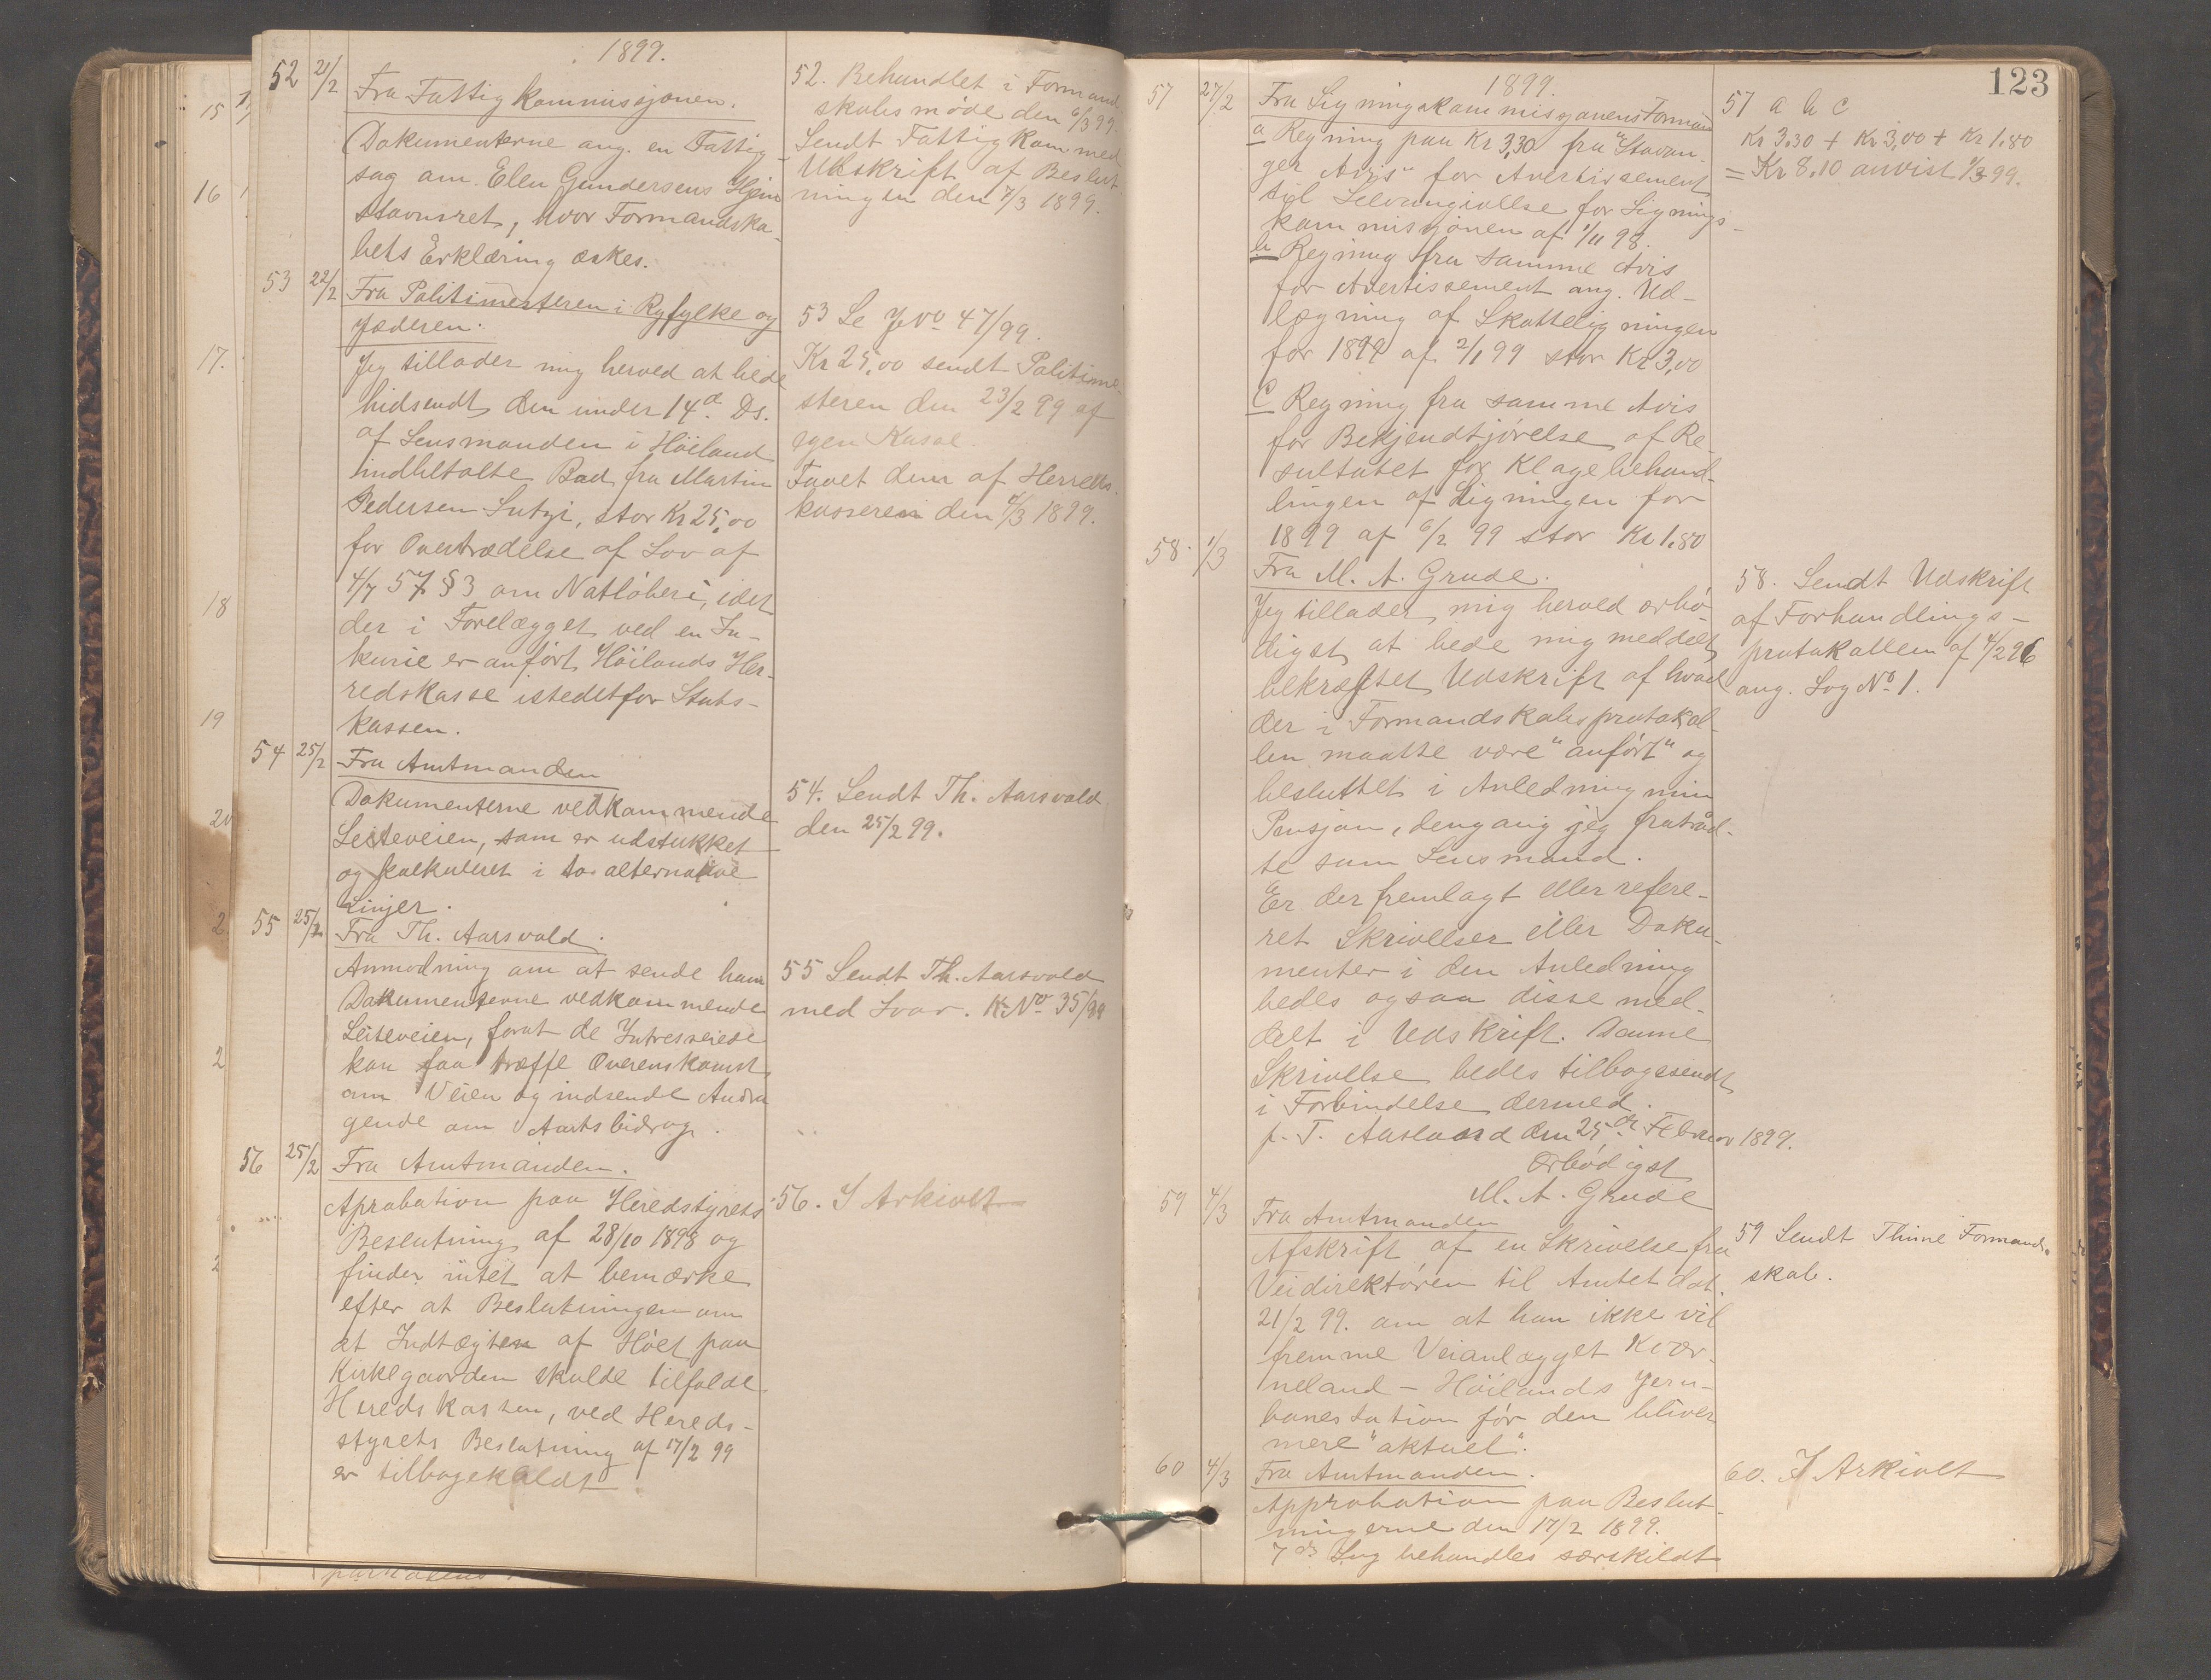 1899.
52 21/2 Fra Fattigkommissjonen.
Dokumenterne ang. en Fattig-
sag om Elen Gundersens Hjem
stavnsret, hvor Formandska-
bets Erklæring æskes.
52. Behandlet i Formand
skabsmøde den 6/3 99.
Sendt Fattigkom med
Udskrift af Beslut-
ningen den 7/3 1899.
53 22/2 Fra Politimesteren i Ryfylke og
Jæderen.
Jeg tillader mig herved at bede
hidsendt den under 14de Ds.
af Lensmanden i Höiland
indbetalte Bod fra Martin
Pedersen Lutzi, stor Kr 25,00
for Overtrædelse af Lov af
4/7 57 § 3 om Natløberi, idet
der i Forelægget ved en In-
kurie er anført Höilands Her-
redskasse istedetfor Stats-
kassen.
53 Se JNo 47/99.
Kr 25,00 sendt Politime-
steren den 23/2 99 af
egen Kasse.
Faaet dem af Herreds-
kasseren den 4/3 1899.
54 25/2 Fra Amtmanden
Dokumenterne vedkommende
Leiteveien, som er udstukket
og kalkuleret i to alternative
Linjer.
54. Sendt Th. Aarsvold
den 25/2 99.
55 25/2 Fra Th. Aarsvold.
Anmodning om at sende ham
Dokumenterne vedkommende
Leiteveien, forat de Intresserede
kan faa træffe Overenskomst
om Veien og indsende Andra
gende om Amtsbidrag.
55 Sendt Th. Aarsvold
med Svar. K No 35/99
56 25/2 Fra Amtmanden.
Aprobation paa Heredstyrets
Beslutning af 28/10 1898 og
finder intet at bemærke
efter at Beslutningen om
at Indtægten af Höet paa
Kirkegaarden skulde tilfalde
Heredskassen, ved Hereds-
styrets Beslutning af 17/2 99
er tilbagekaldt
56. I Arkivet
123
1899.
57 27/2 Fra Ligningskommissjonens Formand
a Regning paa Kr 3,30 fra "Stavan-
ger Avis" for Avertissement
til Selvangivelse for Lignings-
kommissjonen af 1/11 98.
b Regning fra samme Avis
for Avertissement ang. Ud-
lægning af Skatteligningen
for 1899 af 2/1 99 stor Kr 3,00
c Regning fra samme Avis
for Bekjendtjörelse af Re-
sultatet for Klagebehand-
lingen af Ligningen for
1899 af 6/2 99 stor Kr 1.80
57 a b c
Kr 3.30 + Kr 3,00 + Kr 1.80
= Kr 8.10 anvist 1/3 99.
58. 1/3 Fra M. A. Grude.
Jeg tillader mig herved ærbö-
digst at bede mig meddelt
bekræftet Udskrift af hvad
der i Formandskabsprotokol-
len maatte være "anført" og
besluttet i Anledning min
Pensjon, dengang jeg fratraad-
te som Lensmand.
Er der fremlagt eller refere-
ret Skrivelser eller Doku-
menter i den Anledning
bedes ogsaa disse med-
delt i Udskrift. Denne
Skrivelse bedes tilbagesendt
i Forbindelse dermed.
p. T. den 25de Februar 1899.
Ærbödigst
M. A. Grude
58. Sendt Udskrift
af Forhandlings-
protokollen af 4/2 96
ang. Sag No 1.
59 4/3 Fra Amtmanden
Afskrift af en Skrivelse fra
Veidirektören til Amtet dat.
21/2 99. om at han ikke vil
fremme Veianlægget Kvær-
neland - Höilands Jern-
banestation för den bliver
mere "aktuel".
59 Sendt Thime Formand-
skab.
60 4/3 Fra Amtmanden.
Approbation paa Beslut-
ningerne den 17/2 1899.
7de Sag behandles særskildt
60. I Arkivet
15
16
17.
18
19
20
2
2
2